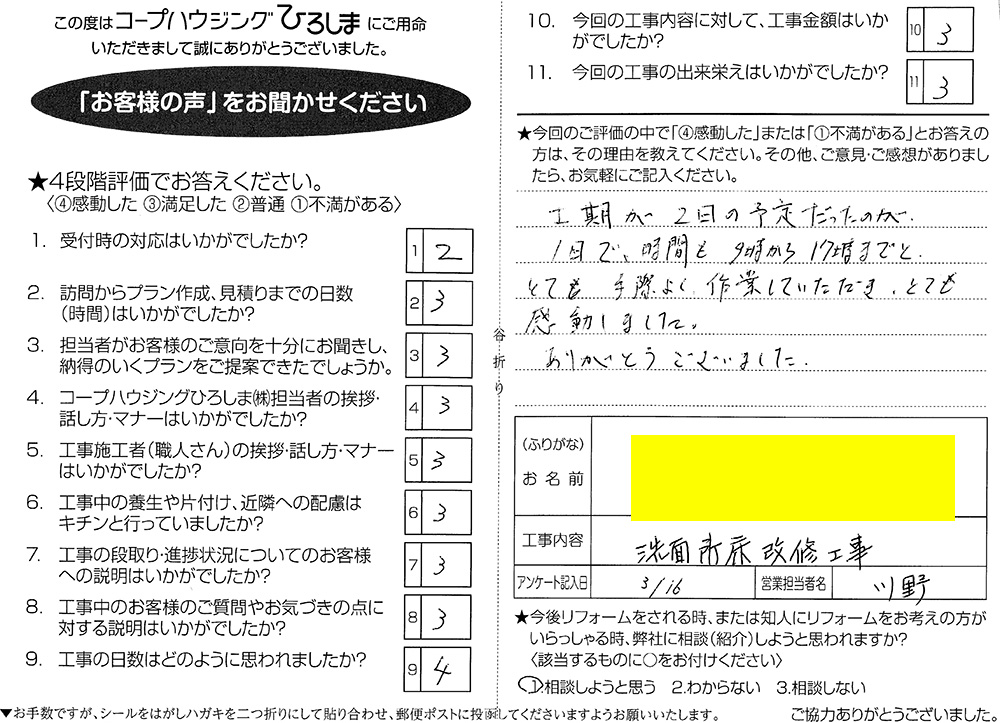 この度はコープハウジングひろしまにご用命
いただきまして誠にありがとうございました。
「お客様の声」をお聞かせください
★4段階評価でお答えください。
〈④感動した ③満足した ②普通 ①不満がある〉
1. 受付時の対応はいかがでしたか?
1 2
2. 訪問からプラン作成、見積りまでの日数
(時間)はいかがでしたか?
2 3
3. 担当者がお客様のご意向を十分にお聞きし、
納得のいくプランをご提案できたでしょうか。
3 3
4. コープハウジングひろしま㈱担当者の挨拶・
話し方・マナーはいかがでしたか?
4 3
5. 工事施工者(職人さん)の挨拶・話し方・マナー
はいかがでしたか?
5 3
6. 工事中の養生や片付け、近隣への配慮は
キチンと行っていましたか?
6 3
7. 工事の段取り・進捗状況についてのお客様
への説明はいかがでしたか?
7 3
8. 工事中のお客様のご質問やお気づきの点に
対する説明はいかがでしたか?
8 3
9. 工事の日数はどのように思われましたか?
9 4
谷折り
10. 今回の工事内容に対して、工事金額はいか
がでしたか?
10 3
11. 今回の工事の出来栄えはいかがでしたか?
11 3
★今回のご評価の中で「④感動した」または「①不満がある」とお答えの
方は、その理由を教えてください。その他、ご意見・ご感想がありまし
たら、お気軽にご記入ください。
工期が2回の予定だったのが、
1回で、時間も9時から17時までと、
とても手際よく作業していただき、とても
感動しました。
ありがとうございました。
(ふりがな)
お名前
工事内容 洗面所床改修工事
アンケート記入日 3/16 営業担当者名 川野
★今後リフォームをされる時、または知人にリフォームをお考えの方が
いらっしゃる時、弊社に相談(紹介)しようと思われますか?
〈該当するものに○をお付けください〉
1.相談しようと思う 2.わからない 3.相談しない
▼お手数ですが、シールをはがしハガキを二つ折りにして貼り合わせ、郵便ポストに投函してくださいますようお願いいたします。
ご協力ありがとうございました。